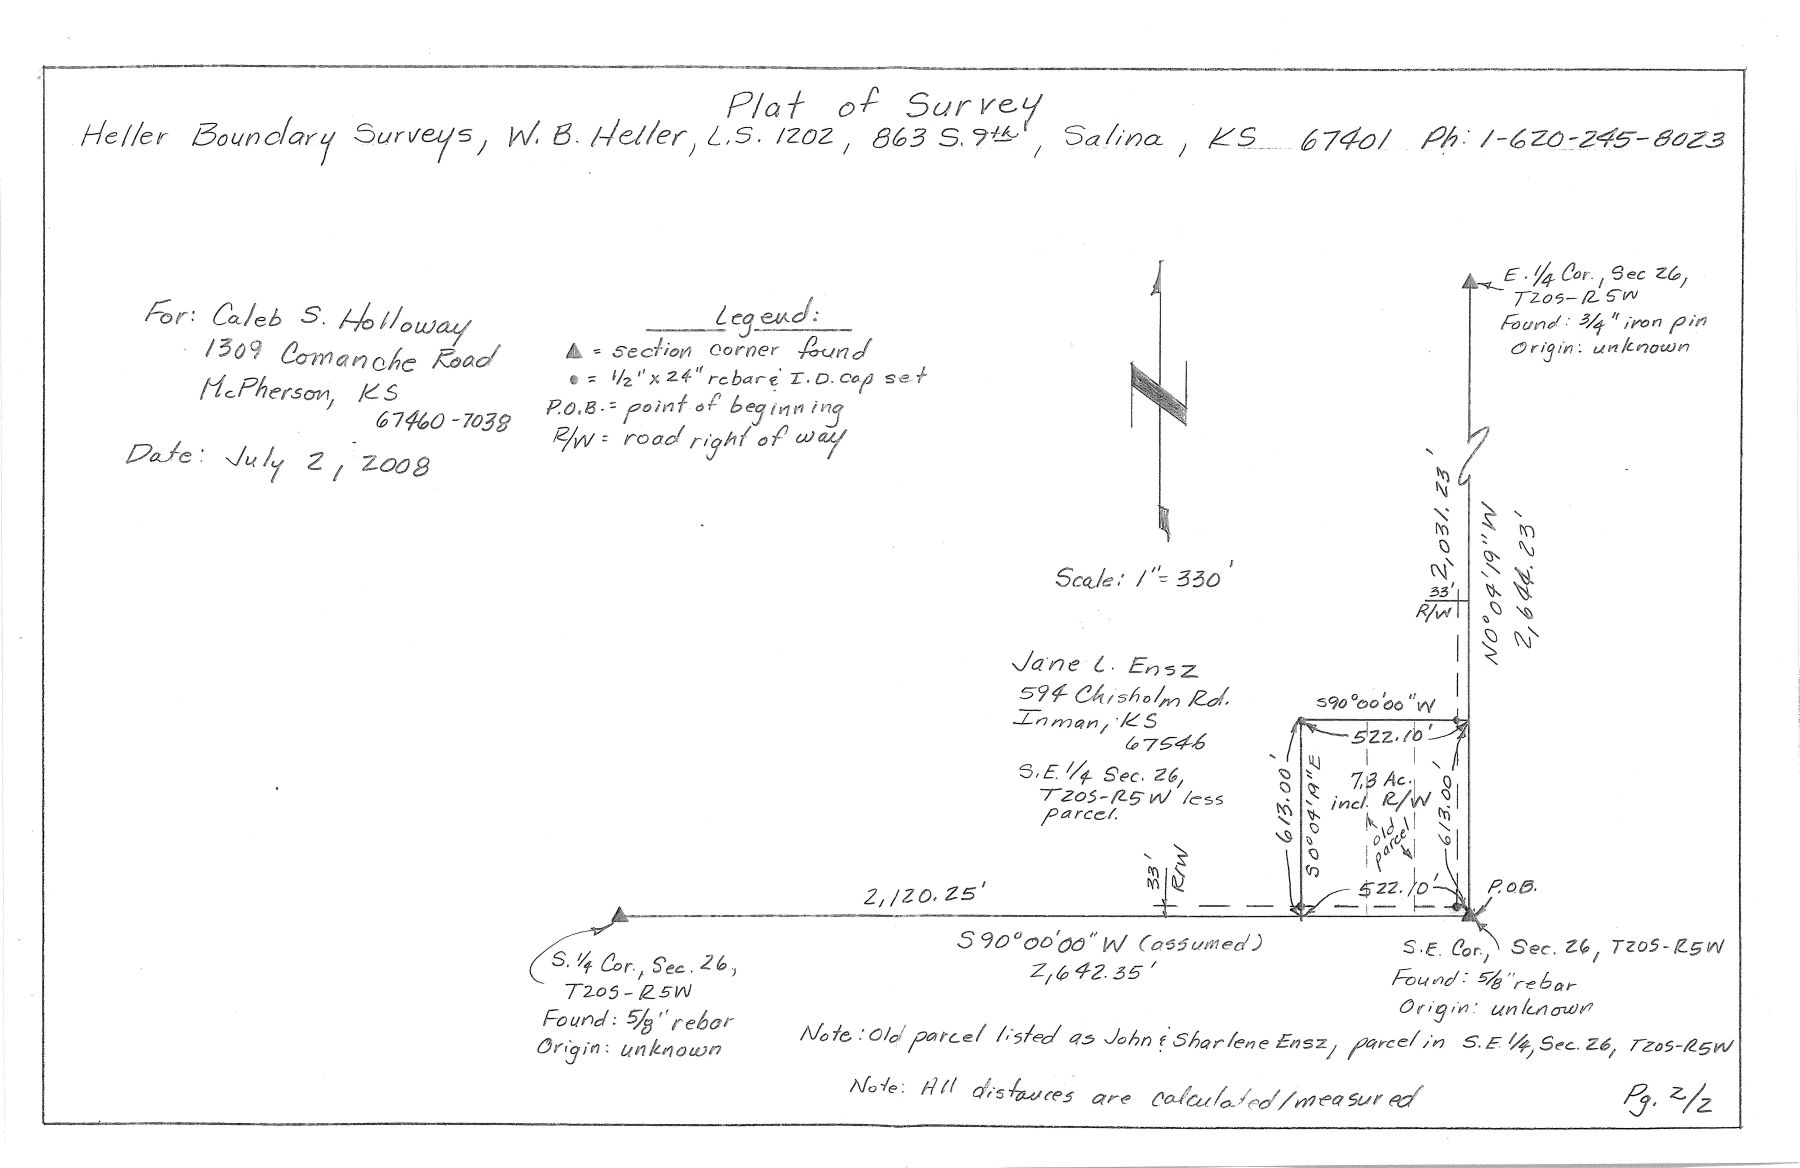 Plat of Survey
Heller Boundary Surveys, W. B. Heller, L.S. 1202, 863 S. 9th, Salina, KS 67401 Ph: 1-620-245-8023
For: Caleb S. Holloway
1309 Comanche Road
McPherson, KS
67460-7038
Date: July 2, 2008
Legend:
▲ = section corner found
● = 1/2" x 24" rebar & I.D. cap set
P.O.B. = point of beginning
R/W = road right of way
Scale: 1" = 330'
E. 1/4 Cor., Sec 26,
T20S-R5W
Found: 3/4" iron pin
Origin: unknown
2,031.23'
N0°04'19"W
2,644.23'
33'
R/W
Jane L. Ensz
594 Chisholm Rd.
Inman, KS
67546
S.E. 1/4 Sec. 26,
T20S-R5W less
parcel.
S90°00'00"W
522.10'
613.00'
S0°04'19"E
7.3 Ac.
incl. R/W
old
parcel
613.00'
522.10'
P.O.B.
33'
R/W
2,120.25'
S90°00'00"W (assumed)
2,642.35'
S. 1/4 Cor., Sec. 26,
T20S-R5W
Found: 5/8" rebar
Origin: unknown
S.E. Cor., Sec. 26, T20S-R5W
Found: 5/8" rebar
Origin: unknown
Note: Old parcel listed as John & Sharlene Ensz, parcel in S.E. 1/4, Sec. 26, T20S-R5W
Note: All distances are calculated/measured
Pg. 2/2